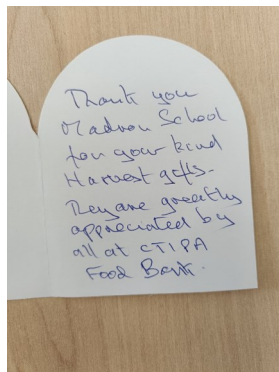 Thank you
Madron School
for your kind
Harvest gifts.
They are greatly
appreciated by
all at CTIPA
Food Bank.